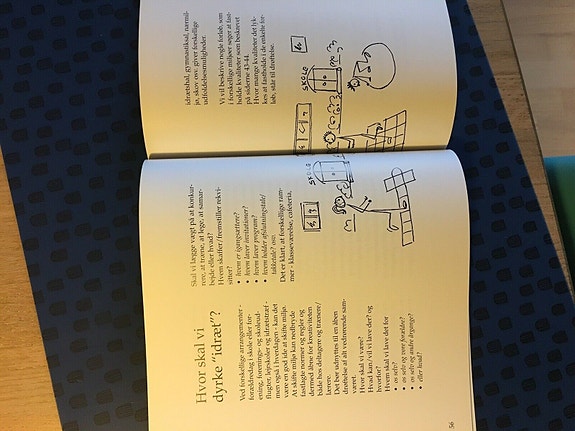 Hvor skal vi
dyrke "idræt"?
Ved forskellige arrangementer -
forældredag i skole eller for-
ening, forenings- og skoleud-
flugter, lejrskoler og idrætstræf -
men også i hverdagen - kan det
være en god ide at skifte miljø.
At skifte miljø kan nedbryde
fastlagte normer og regler og
dermed åbne for kreativiteten
både hos deltagere og trænere/
lærere.
Det bør udnyttes til en åben
drøftelse af alt vedrørende sam-
været.
Hvor skal vi være?
Hvad kan/vil vi lave der? og
hvorfor?
Hvem skal vi lave det for
• os selv?
• os selv og vore forældre?
• os selv og andre årgange?
• eller hvad?
56
Skal vi lægge vægt på at konkur-
rere, at træne, at lege, at samar-
bejde eller hvad?
Hvem skaffer/fremstiller rekvi-
sitter?
• hvem er igangsættere?
• hvem laver invitationer?
• hvem laver program?
• hvem holder afslutningstale/
takketale? osv.
Det er klart, at forskellige ram-
mer - klasseværelse, cafeteria,
idrætshal, gymnastiksal, nærmil-
jø, skov osv. giver forskellige
udfoldelsesmuligheder.
Vi vil beskrive nogle forløb, som
i forskellige miljøer søger at fast-
holde kvaliteter som beskrevet
på siderne 43-44.
Hvor mange kvaliteter det lyk-
kes at fastholde i de enkelte for-
løb, står til drøftelse.
SKOLE
SKOLE